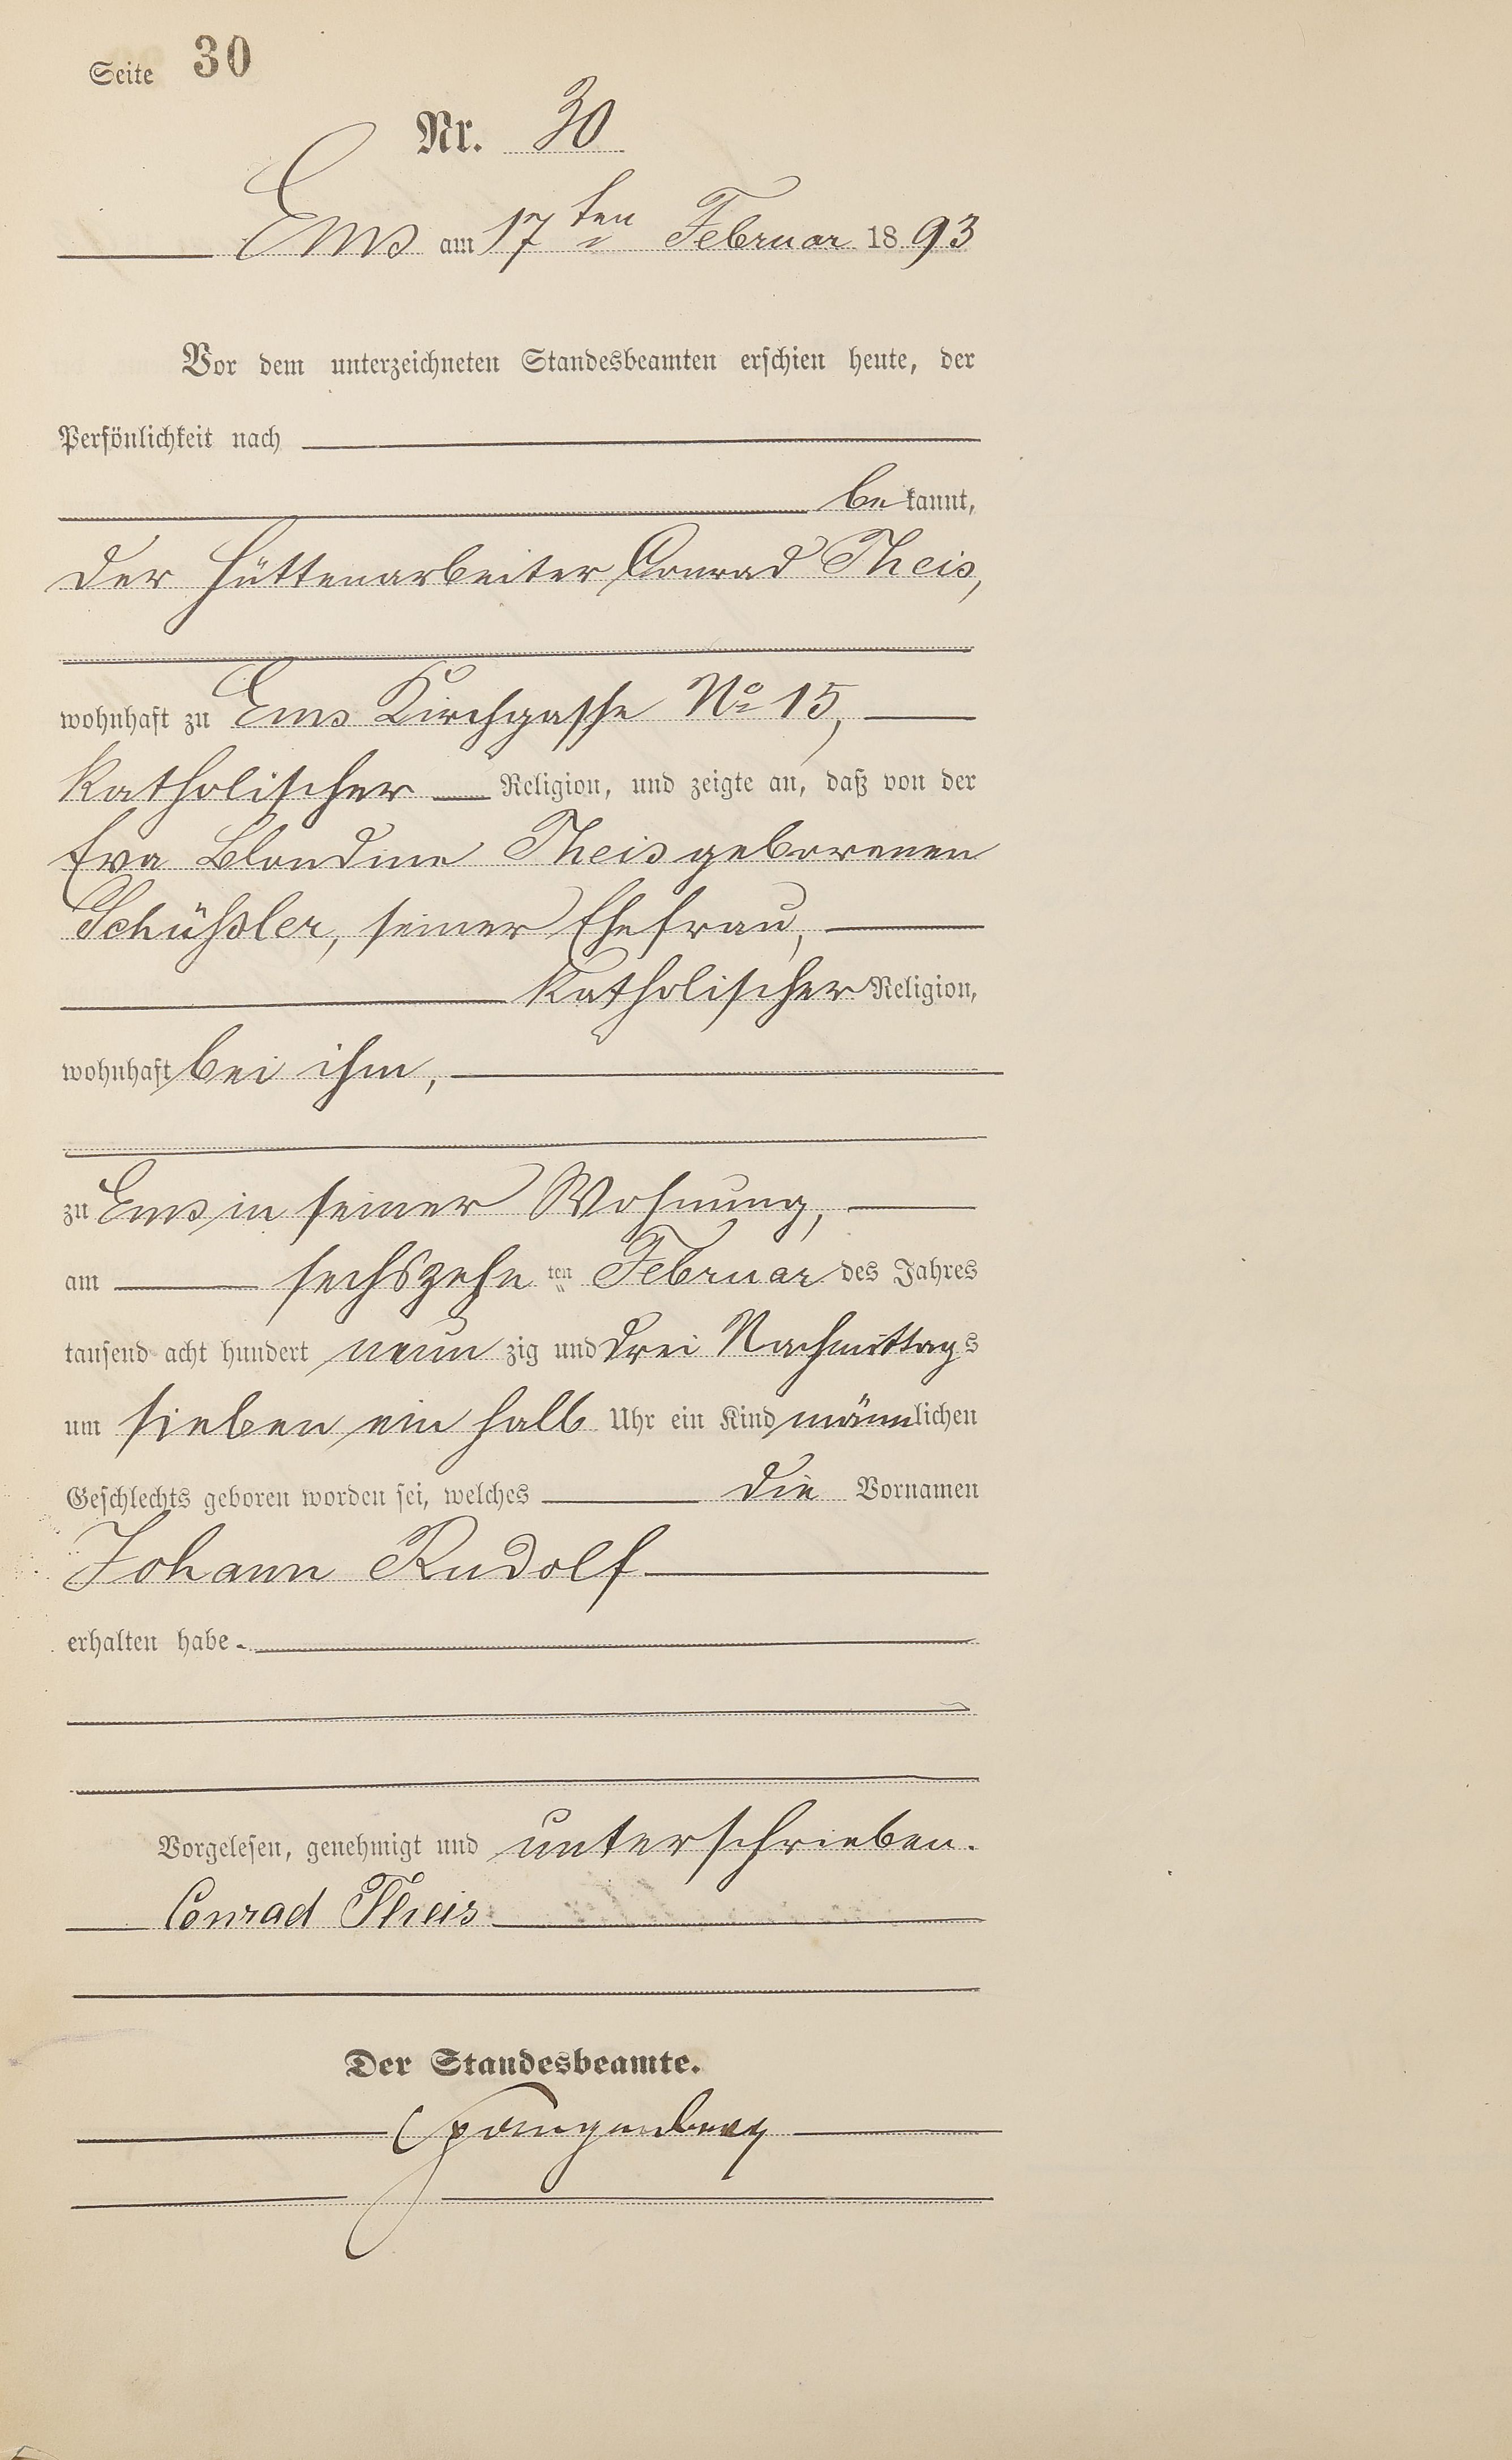 Seite 30
Nr. 30
Ems am 17ten Februar 1893
Vor dem unterzeichneten Standesbeamten erschien heute, der
Persönlichkeit nach
bekannt,
der Hüttenarbeiter Conrad Theis,
wohnhaft zu Ems Kirchgasse No 15,
katholischer Religion, und zeigte an, daß von der
Eva Blondine Theis geborenen
Schüßler, seiner Ehefrau,
katholischer Religion,
wohnhaft bei ihm,
zu Ems in seiner Wohnung,
am sechszehnten Februar des Jahres
tausend acht hundert neunzig und drei Nachmittags
um sieben ein halb Uhr ein Kind männlichen
Geschlechts geboren worden sei, welches die Vornamen
Johann Rudolf
erhalten habe.
Vorgelesen, genehmigt und unterschrieben.
Conrad Theis
Der Standesbeamte.
Spangenberg